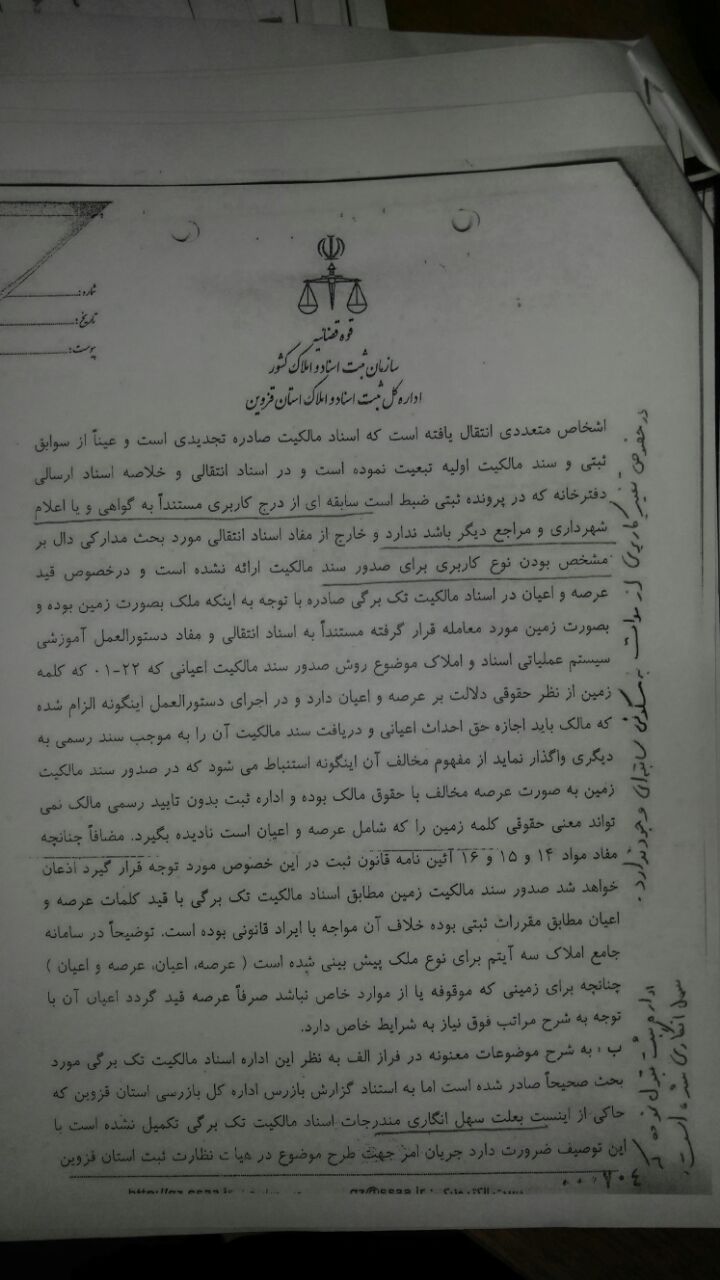 شماره:
تاریخ:
پیوست:
قوه قضائیه
سازمان ثبت اسناد و املاک کشور
اداره کل ثبت اسناد و املاک استان قزوین
اشخاص متعددی انتقال یافته است که اسناد مالکیت صادره تجدیدی است و عیناً از سوابق
ثبتی و سند مالکیت اولیه تبعیت نموده است و در اسناد انتقالی و خلاصه اسناد ارسالی
دفترخانه که در پرونده ثبتی ضبط است سابقه ای از درج کاربری مستنداً به گواهی و یا اعلام
شهرداری و مراجع دیگر باشد ندارد و خارج از مفاد اسناد انتقالی مورد بحث مدارکی دال بر
مشخص بودن نوع کاربری برای صدور سند مالکیت ارائه نشده است و درخصوص قید
عرصه و اعیان در اسناد مالکیت تک برگی صادره با توجه به اینکه ملک بصورت زمین بوده و
بصورت زمین مورد معامله قرار گرفته مستنداً به اسناد انتقالی و مفاد دستورالعمل آموزشی
سیستم عملیاتی اسناد و املاک موضوع روش صدور سند مالکیت اعیانی که ۲۲-۰۱ که کلمه
زمین از نظر حقوقی دلالت بر عرصه و اعیان دارد و در اجرای دستورالعمل اینگونه الزام شده
که مالک باید اجازه حق احداث اعیانی و دریافت سند مالکیت آن را به موجب سند رسمی به
دیگری واگذار نماید از مفهوم مخالف آن اینگونه استنباط می شود که در صدور سند مالکیت
زمین به صورت عرصه مخالف با حقوق مالک بوده و اداره ثبت بدون تایید رسمی مالک نمی
تواند معنی حقوقی کلمه زمین را که شامل عرصه و اعیان است نادیده بگیرد. مضافاً چنانچه
مفاد مواد ۱۴ و ۱۵ و ۱۶ آئین نامه قانون ثبت در این خصوص مورد توجه قرار گیرد اذعان
خواهد شد صدور سند مالکیت زمین مطابق اسناد مالکیت تک برگی با قید کلمات عرصه و
اعیان مطابق مقررات ثبتی بوده خلاف آن مواجه با ایراد قانونی بوده است. توضیحاً در سامانه
جامع املاک سه آیتم برای نوع ملک پیش بینی شده است ( عرصه، اعیان، عرصه و اعیان )
چنانچه برای زمینی که موقوفه یا از موارد خاص نباشد صرفاً عرصه قید گردد اعیان آن با
توجه به شرح مراتب فوق نیاز به شرایط خاص دارد.
ب : به شرح موضوعات معنونه در فراز الف به نظر این اداره اسناد مالکیت تک برگی مورد
بحث صحیحاً صادر شده است اما به استناد گزارش بازرس اداره کل بازرسی استان قزوین که
حاکی از اینست بعلت سهل انگاری مندرجات اسناد مالکیت تک برگی تکمیل نشده است با
این توصیف ضرورت دارد جریان امر جهت طرح موضوع در هیات نظارت ثبت استان قزوین
در خصوص تغییر کاربری از به مسکونی سابقه ای وجود ندارد.
اداره ثبت قبول نموده که
سهل انگاری شده است.